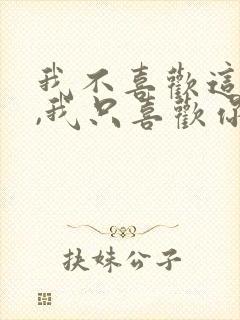 我不喜歡這
,我只喜歡你
扶妹公子